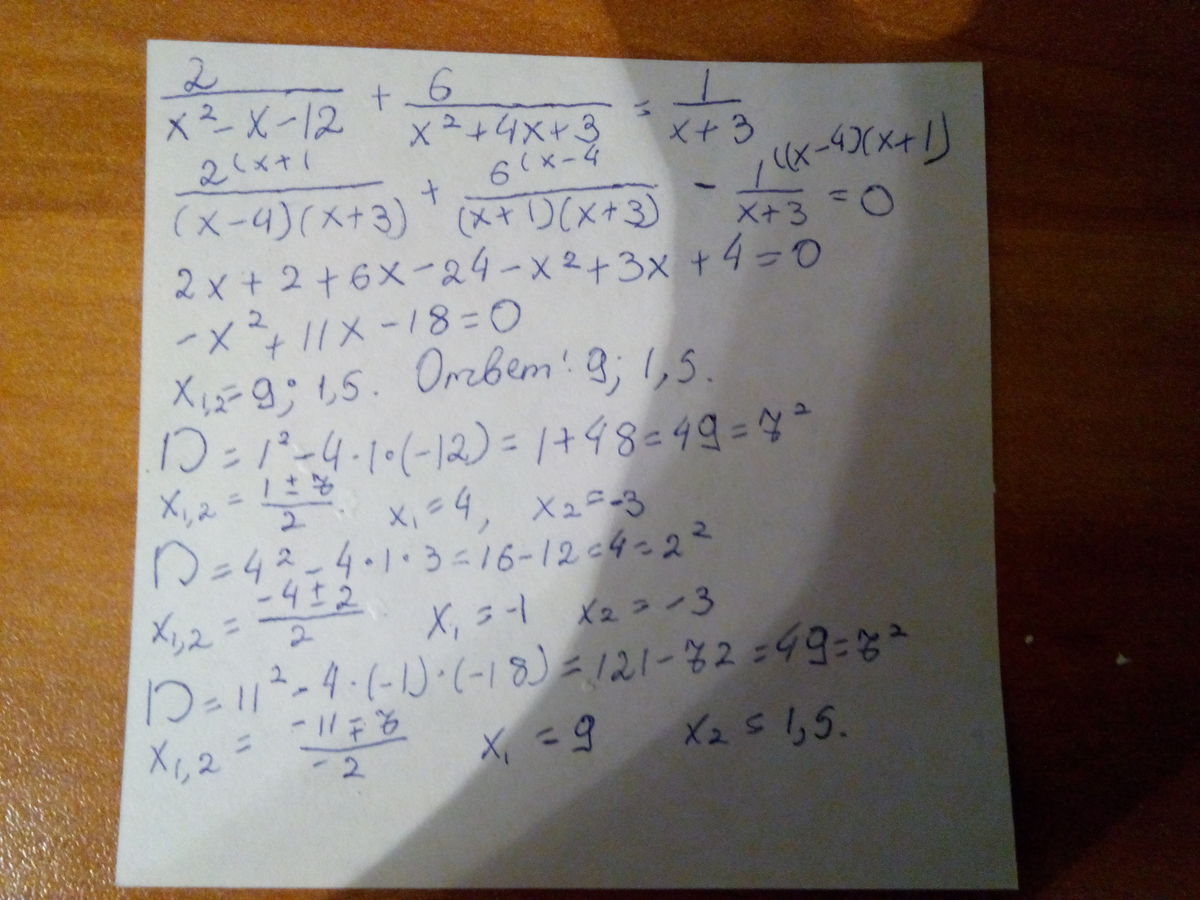 2/(x² - x - 12) + 6/(x² + 4x + 3) = 1/(x + 3)
2(x+1/((x-4)(x+3)) + 6(x-4/((x+1)(x+3)) - 1((x-4)(x+1)/(x+3) = 0
2x + 2 + 6x - 24 - x² + 3x + 4 = 0
-x² + 11x - 18 = 0
x₁,₂ = 9; 1,5. Ответ: 9; 1,5.
D = 1² - 4·1·(-12) = 1 + 48 = 49 = 7²
x₁,₂ = (1 ± 7)/2 x₁ = 4, x₂ = -3
D = 4² - 4·1·3 = 16 - 12 = 4 = 2²
x₁,₂ = (-4 ± 2)/2 x₁ = -1 x₂ = -3
D = 11² - 4·(-1)·(-18) = 121 - 72 = 49 = 7²
x₁,₂ = (-11 ∓ 7)/(-2) x₁ = 9 x₂ = 1,5.